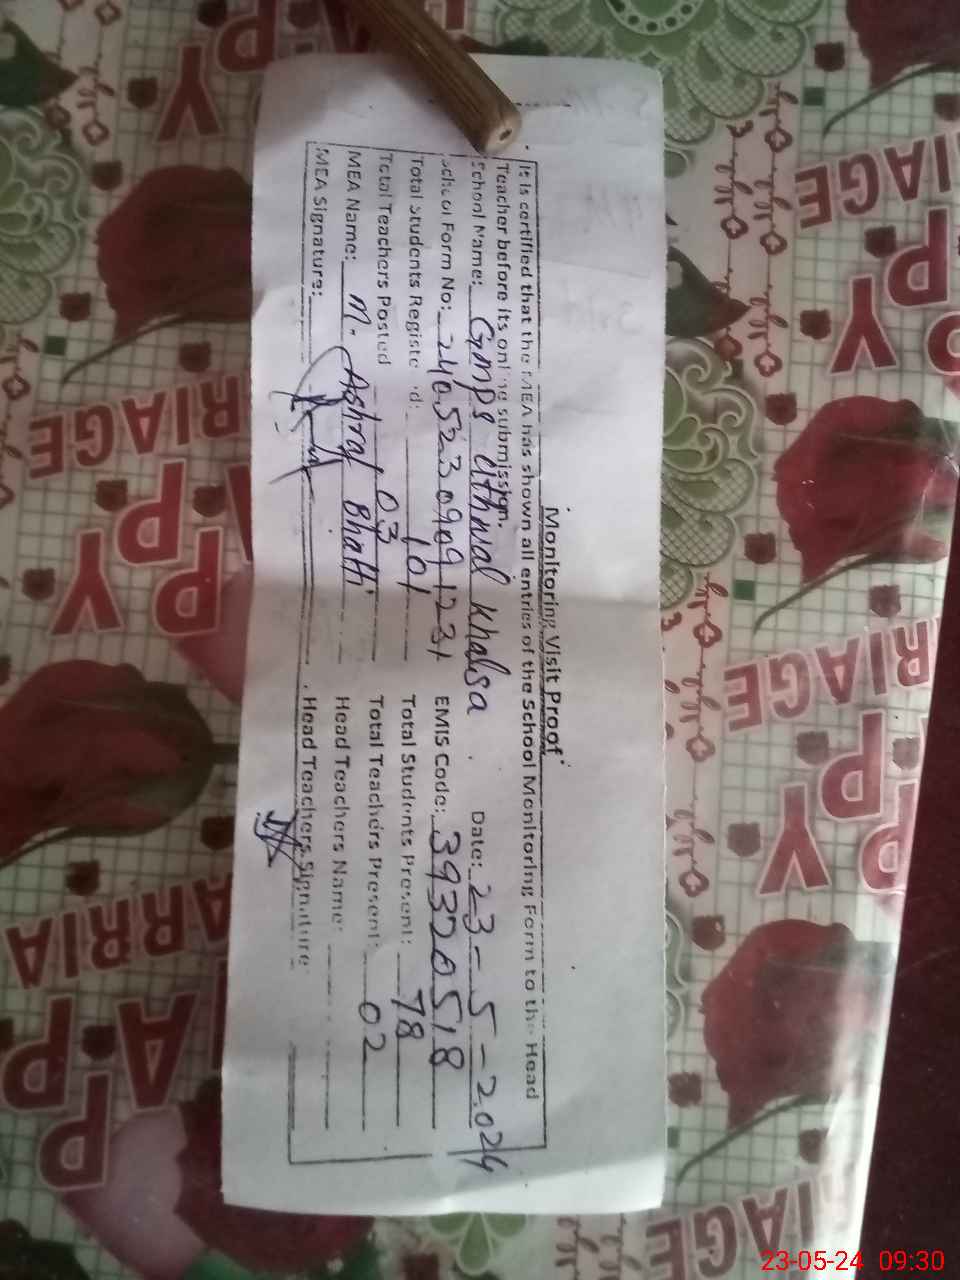 Monitoring Visit Proof
It is certified that the MEA has shown all entries of the School Monitoring Form to the Head
Teacher before its online submission.
School Name: GMPS Athwal Khalsa Date: 23-5-2024
School Form No: 24052309091231 EMIS Code: 39320518
Total Students Registered: 101 Total Students Present: 78
Total Teachers Posted 03 Total Teachers Present: 02
MEA Name: M. Ashraf Bhatti Head Teachers Name:
MEA Signature: Head Teachers Signature:
MARRIAGE
HAPPY
23-05-24 09:30